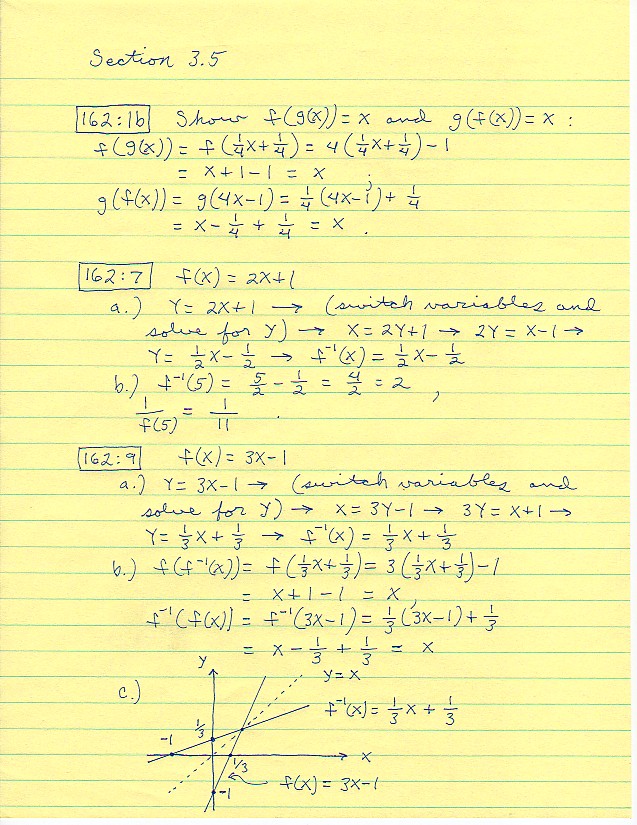 Section 3.5
162:1b Show f(g(x)) = x and g(f(x)) = x :
f(g(x)) = f(1/4x+1/4) = 4(1/4x+1/4)-1
= x+1-1 = x ;
g(f(x)) = g(4x-1) = 1/4(4x-1)+1/4
= x-1/4+1/4 = x .
162:7 f(x) = 2x+1
a.) Y = 2X+1 → (switch variables and
solve for Y) → X = 2Y+1 → 2Y = X-1 →
Y = 1/2X-1/2 → f⁻¹(x) = 1/2x-1/2
b.) f⁻¹(5) = 5/2 - 1/2 = 4/2 = 2 ,
1/f(5) = 1/11 .
162:9 f(x) = 3x-1
a.) Y = 3X-1 → (switch variables and
solve for Y) → X = 3Y-1 → 3Y = X+1 →
Y = 1/3X + 1/3 → f⁻¹(x) = 1/3x + 1/3
b.) f(f⁻¹(x)) = f(1/3x+1/3) = 3(1/3x+1/3)-1
= x+1-1 = x ,
f⁻¹(f(x)) = f⁻¹(3x-1) = 1/3(3x-1)+1/3
= x - 1/3 + 1/3 = x
c.) y y=x
f⁻¹(x) = 1/3x + 1/3
1/3
-1
x
1/3
-1 f(x) = 3x-1